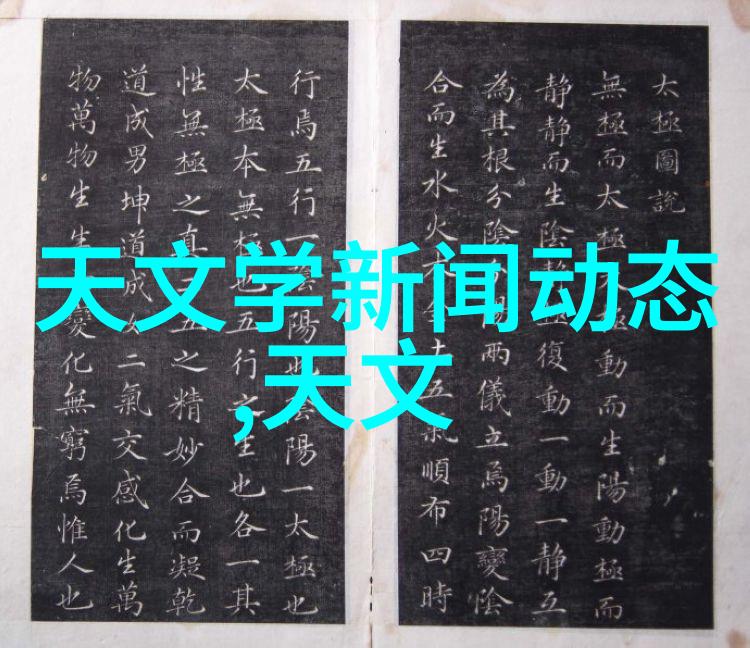 太極圖說
無極而太極太極動而生陽動極而
静静而生陰静極復動一動一静互
為其根分陰分陽兩儀立焉陽變陰
合而生水火木金土五氣順布四時
行焉五行一陰陽也陰陽一太極也
太極本無極也五行之生也各一其
性無極之真二五之精妙合而凝乾
道成男坤道成女二氣交感化生萬
物萬物生生變化無窮焉惟人也
天文学新闻动态
,天文